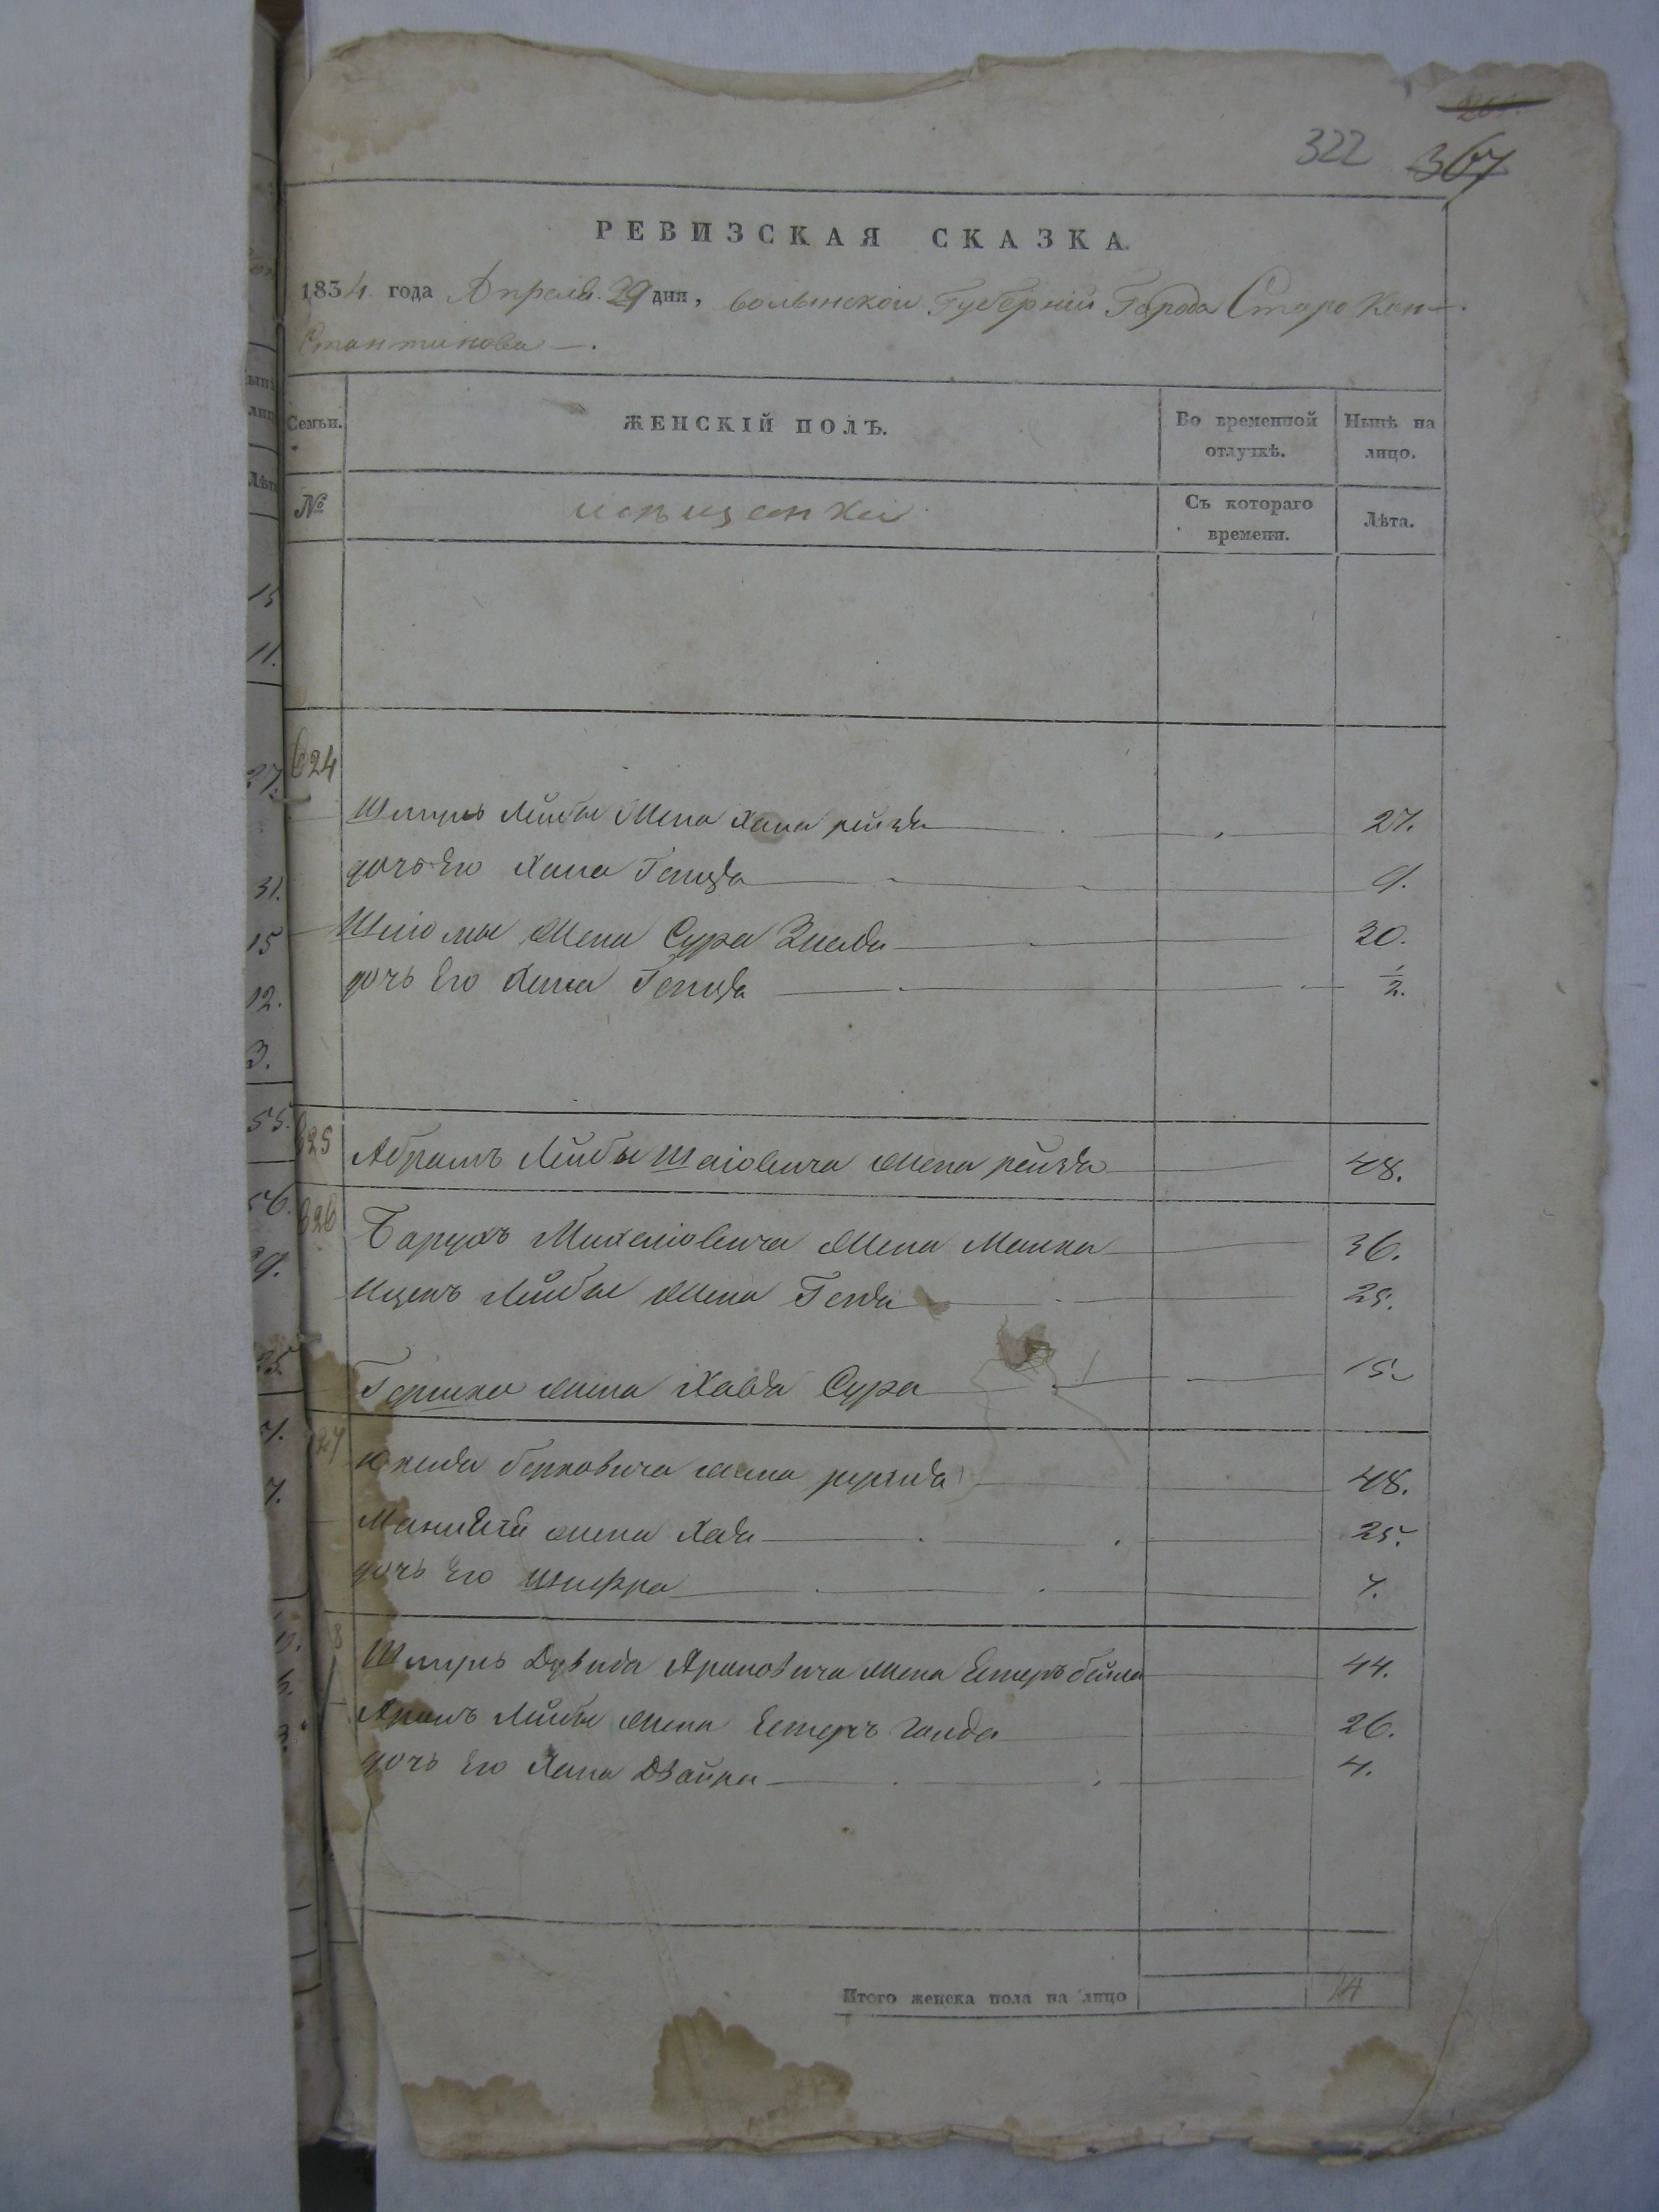 322 367
РЕВИЗСКАЯ СКАЗКА.
1834 года Апреля 29 дня, волынской Губерніи Города Старо Кон-
стантинова
Семьи.
ЖЕНСКІЙ ПОЛЪ.
Во временной отлучкѣ.
Нынѣ на лицо.
№
Съ котораго времени.
Лѣта.
624
Шмуль Лейбы жена Хана рейзя 27.
дочь Его Хана 9.
Шлiомы жена Сура 20.
дочь Его 1/2.
625 Абрамъ Лейбы Шаiовича жена рейзя 48.
626 Барухъ Михелiовича жена Малка 36.
Ицекъ Лейбы жена Геня 25.
Гершка жена Хава Сура 15
27 берковича жена 48.
жена Хая 25.
дочь Его Шифра 7.
8 Шмуль Дувида Ароновича жена Естеръ бейла 44.
Аронъ Лейбы жена Естеръ 26.
дочь Его Хана Двойра 4.
Итого женска пола на лицо 14
15
11.
27.
31.
15
12.
3.
55.
56.
7.
7.